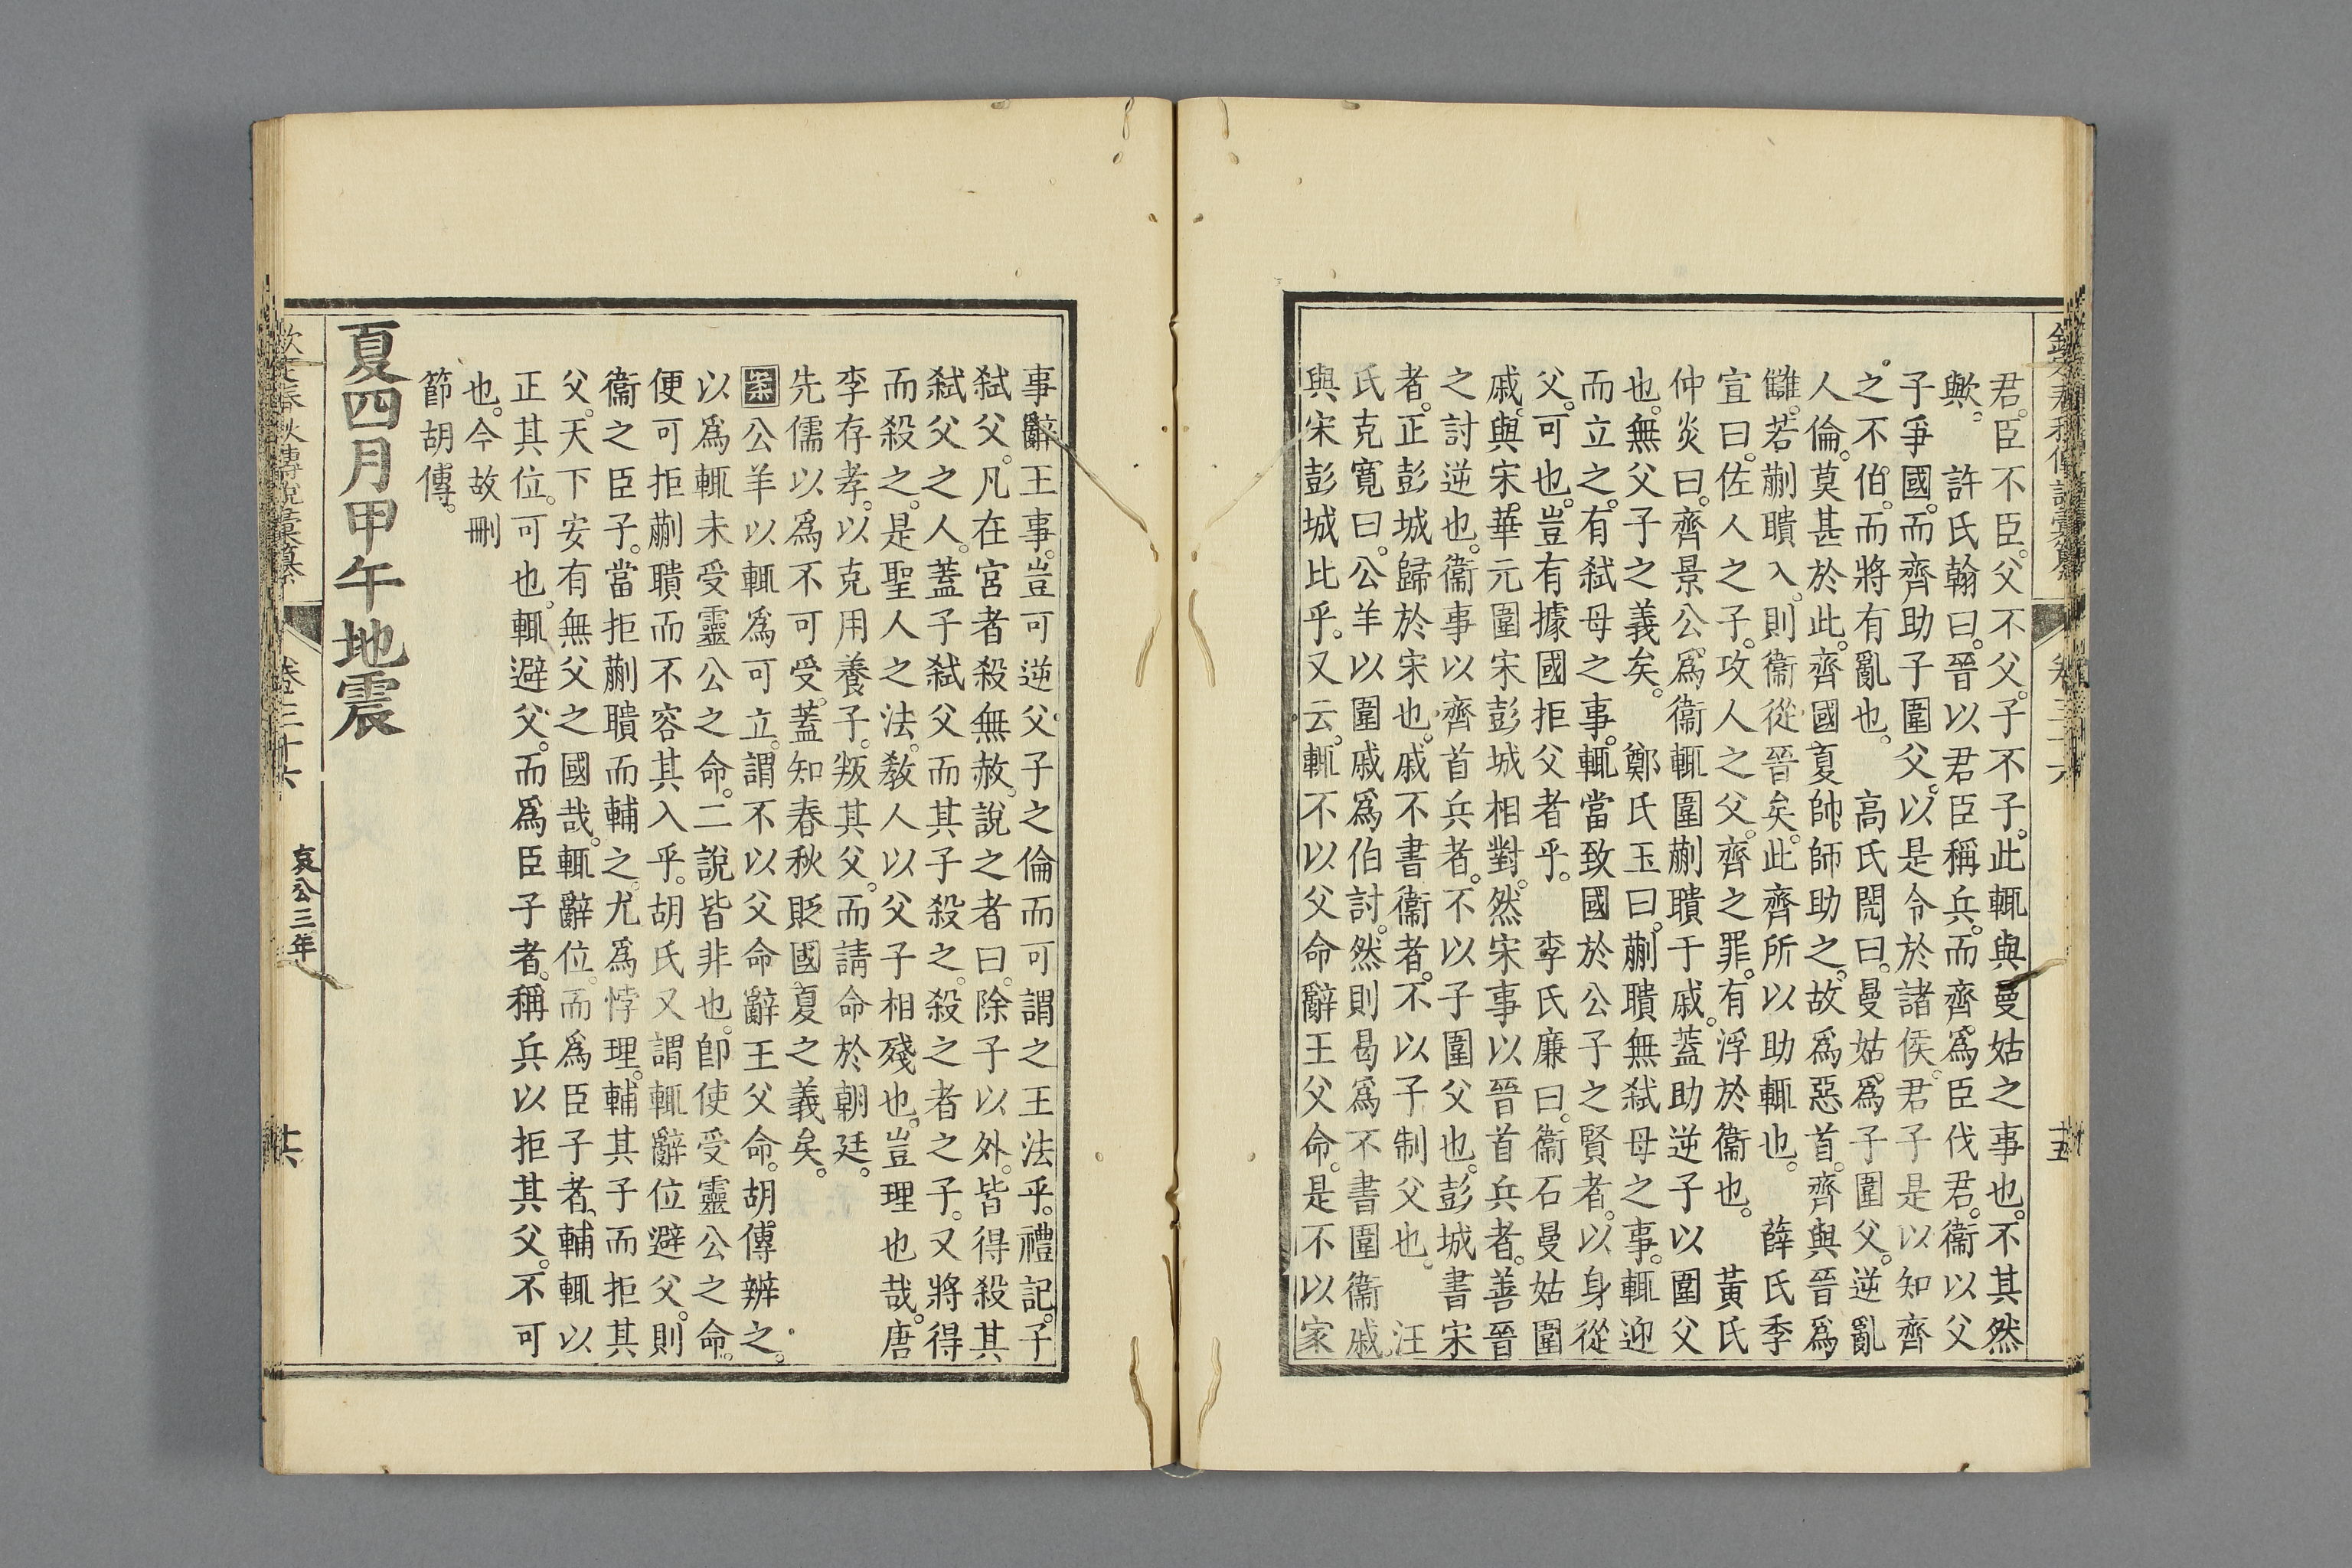 君。臣不臣。父不父。子不子。此輒與曼姑之事也。不其然
歟。　許氏翰曰。晉以君臣稱兵。而齊爲臣伐君。衞以父
子爭國。而齊助子圍父。以是令於諸侯。君子是以知齊
之不伯。而將有亂也。　高氏閌曰。曼姑爲子圍父。逆亂
人倫。莫甚於此。齊國夏帥師助之。故爲惡首。齊與晉爲
讎。若蒯聵入。則衞從晉矣。此齊所以助輒也。　薛氏季
宣曰。佐人之子。攻人之父。齊之罪。有浮於衞也。　黃氏
仲炎曰。齊景公爲衞輒圍蒯聵于戚。蓋助逆子以圍父
也。無父子之義矣。　鄭氏玉曰。蒯聵無弒母之事。輒迎
而立之。有弒母之事。輒當致國於公子之賢者。以身從
父。可也。豈有據國拒父者乎。　李氏廉曰。衞石曼姑圍
戚。與宋華元圍宋彭城相對。然宋事以晉首兵者。善晉
之討逆也。衞事以齊首兵者。不以子圍父也。彭城書宋
者。正彭城歸於宋也。戚不書衞者。不以子制父也。　汪
氏克寬曰。公羊以圍戚爲伯討。然則曷爲不書圍衞戚
與宋彭城比乎。又云。輒不以父命辭王父命。是不以家
事辭王事。豈可逆父子之倫而可謂之王法乎。禮記。子
弒父。凡在宮者殺無赦。說之者曰。除子以外。皆得殺其
弒父之人。蓋子弒父而其子殺之。殺之者之子。又將得
而殺之。是聖人之法。敎人以父子相殘也。豈理也哉。唐
李存孝。以克用養子。叛其父。而請命於朝廷。
先儒以爲不可受。蓋知春秋貶國夏之義矣。
案公羊以輒爲可立。謂不以父命辭王父命。胡傳辨之。
以爲輒未受靈公之命。二說皆非也。卽使受靈公之命。
便可拒蒯聵而不容其入乎。胡氏又謂輒辭位避父。則
衞之臣子。當拒蒯聵而輔之。尤爲悖理。輔其子而拒其
父。天下安有無父之國哉。輒辭位。而爲臣子者。輔輒以
正其位。可也。輒避父。而爲臣子者。稱兵以拒其父。不可
也。今故刪
節胡傳。
夏四月甲午地震
卷三十六
哀公三年